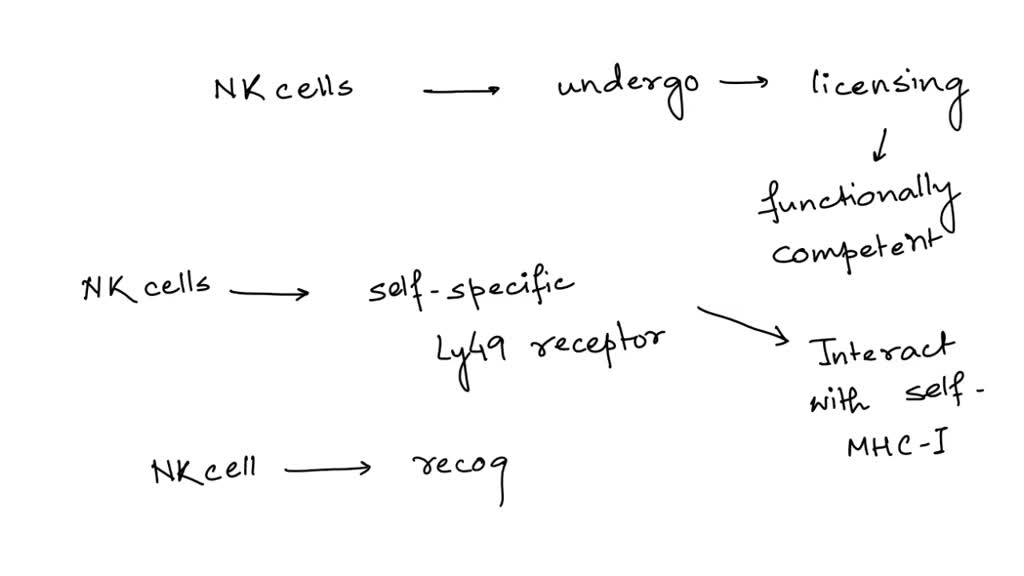 NK cells → undergo → licensing
↓
functionally
competent
NK cells → self-specific
Ly49 receptor → Interact
with self-
MHC-I
NK cell → recog